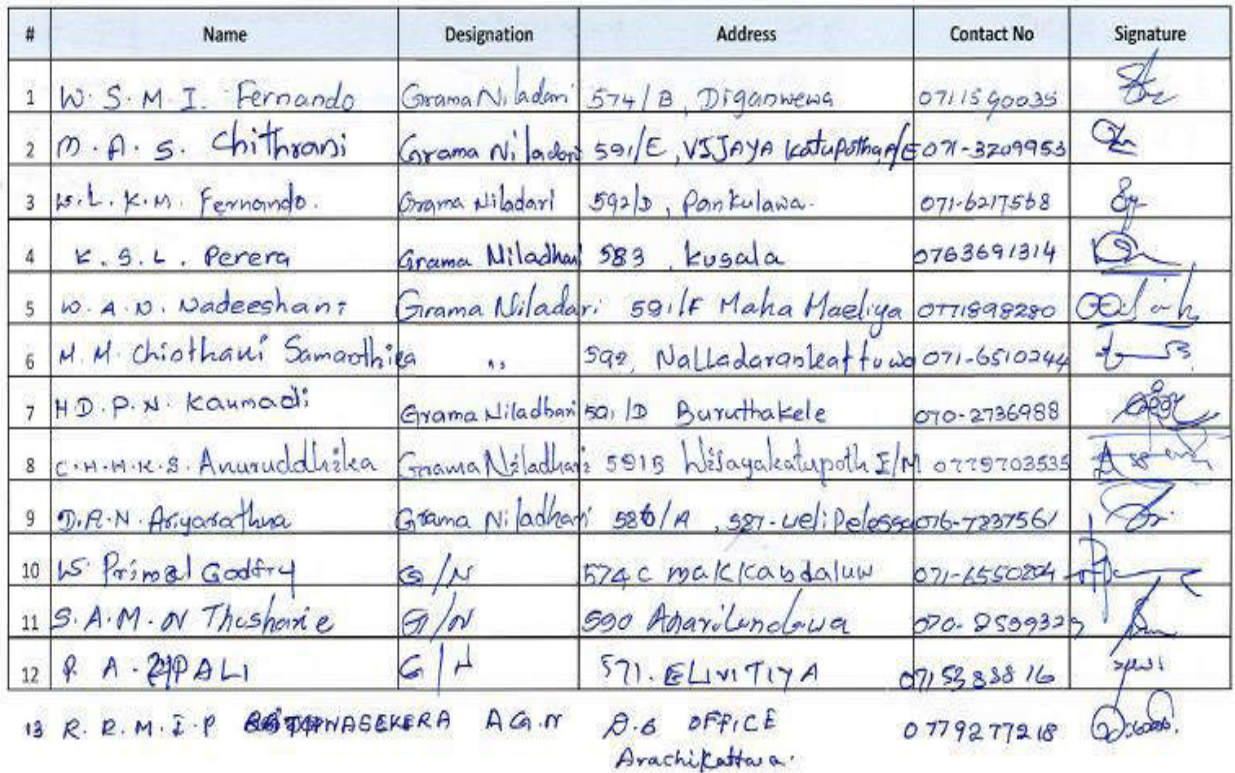 # Name Designation Address Contact No Signature
1 W. S. M. I. Fernando Grama Niladari 574/B, Diganwewa 0711590035
2 M. A. S. Chithrani Grama Niladari 591/E, VIJAYA Katupotha 071-3209953
3 W. L. K. M. Fernando. Grama Niladari 592/D, Pankulawa. 071-6217568
4 K. S. L. Perera Grama Niladhari 583, Kusala 0763691314
5 W. A. N. Nadeeshani Grama Niladari 591/F Maha Maeliya 0771898280
6 M. M. Samarthika ,, 592, Nalladarankattuwa 071-6510244
7 H D. P. N. Kaumadi Grama Niladhari 591/D Buruthakele 070-2736988
8 C. H. H. K. S. Anuruddhika Grama Niladhari 591B Wijayakatupoth E/M 0779703535
9 D. R. N. Ariyarathna Grama Niladhari 586/A, 587- 076-7237561
10 W. Primal Godfry G/N 574 C Makkandaluw
11 S. A. M. N Thusharie G/N 590 Anavilundawa
12 P. A. G/N 571. ELIVITIYA
13 R. R. M. I. P A G. N D.S OFFICE 0779277218
Arachikattuwa.